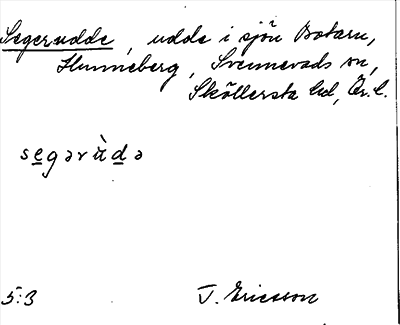 Segerudde, udde i sjön Botarn,
Hunneberg, Svennevads sn,
Sköllersta hd, Ör. l.
segərùdə
5:3 T. Ericsson